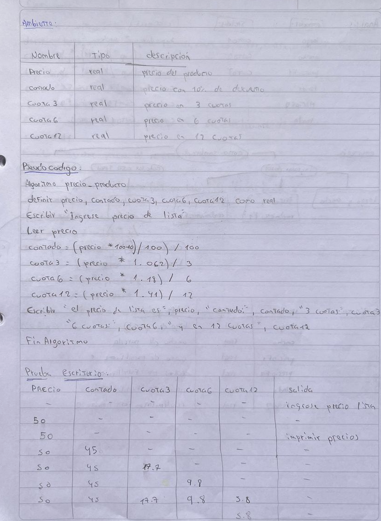 Ambiente:
Nombre Tipo descripcion
Precio real precio del producto
contado real precio con 10% de descuento
cuota3 real precio a 3 cuotas
cuota6 real precio a 6 cuotas
cuota12 real precio a 12 cuotas
Pseudocodigo:
Algoritmo precio_producto
definir precio, contado, cuota3, cuota6, cuota12 como real
Escribir "Ingrese precio de lista"
Leer precio
contado = (precio * 100-10)/100) / 100
cuota3 = (precio * 1.062)/3
cuota6 = (precio * 1.18) / 6
cuota12 = (precio * 1.41) / 12
Escribir "el precio de lista es", precio, "contado", contado, "3 cuotas", cuota3
"6 cuotas", cuota6, "y en 12 cuotas", cuota12
Fin Algoritmo
Prueba Escritorio:
PRECIO contado cuota3 cuota6 cuota12 Salida
- - - - - ingrese precio lista
50 - - - - -
50 - - - - imprimir precios
50 45 - - - -
50 45 17.7 - - -
50 45 9.8 - -
50 45 17.7 9.8 5.8 -
5.8 -